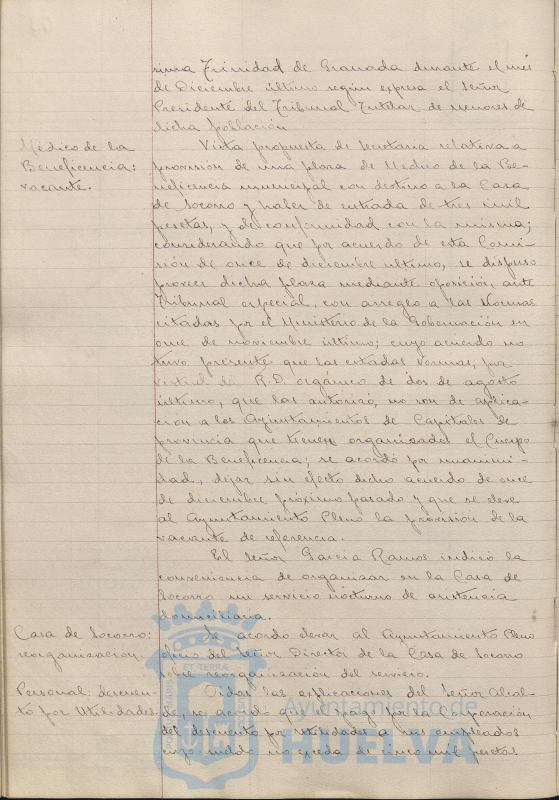 sima Trinidad de Granada durante el mes
de Diciembre último según expresa el Señor
Presidente del Tribunal Tutelar de menores de
dicha población
Médico de la
Beneficencia:
vacante.
Vista propuesta de Secretaría relativa a
provisión de una plaza de Medico de la Be-
neficencia municipal con destino a la Casa
de Socorro y haber de entrada de tres mil
pesetas, y de conformidad con la misma;
considerando que por acuerdo de esta Comi-
sión de once de diciembre último, se dispuso
proveer dicha plaza mediante oposición, ante
Tribunal especial, con arreglo a las Normas
citadas por el Ministerio de la Gobernación en
once de noviembre último; cuyo acuerdo no
tuvo presente que las citadas normas, por
virtud del R.D. orgánico de dos de agosto
último, que las autorizó, no son de aplica-
ción a los Ayuntamientos de Capitales de
provincia que tienen organizados el Cuerpo
de la Beneficencia; se acordó por unanimi-
dad, dejar sin efecto dicho acuerdo de once
de diciembre próximo pasado y que se eleve
al Ayuntamiento Pleno la provisión de la
vacante de referencia.
El Señor Garcia Ramos indicó la
conveniencia de organizar en la Casa de
Socorro un servicio nocturno de asistencia
domiciliaria.
Casa de Socorro:
reorganización.
Se acordo elevar al Ayuntamiento Pleno
oficio del Señor Director de la Casa de Socorro
sobre reorganización del servicio.
Personal: descuen-
to por Utilidades.
Oidas las explicaciones del Señor Alcal-
de, se acordo que el pago por la Corporación
del descuento por utilidades a sus empleados
cuyo sueldo no exceda de cinco mil pesetas
Ayuntamiento de
HUELVA